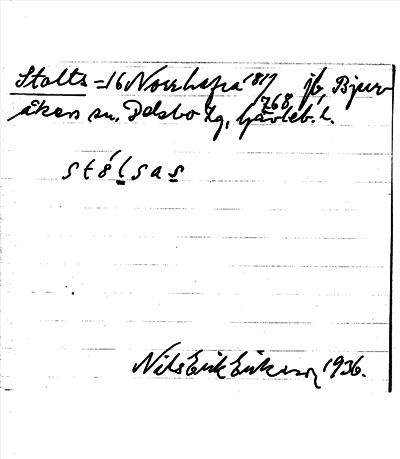 Stolts = 16 Norrhafra 1817 jb, Bjur-
768
åkers sn. Delsbo tg, Gävleb. l.
stó̀lsas
Nils Erik Eriksson 1936.